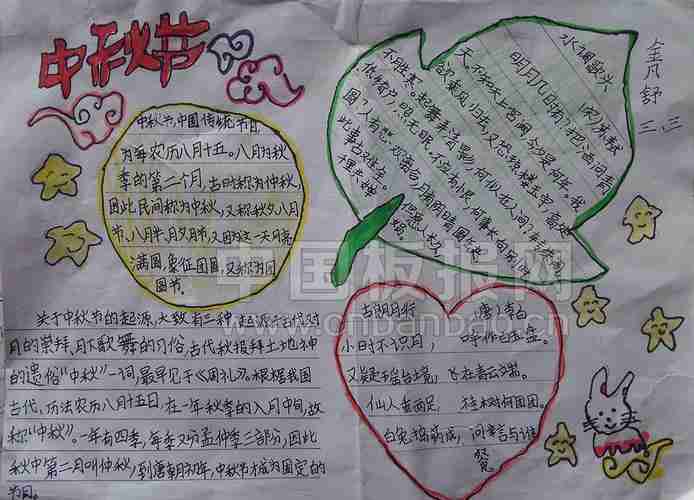 中秋节
中秋节,中国传统节日,
为每农历八月十五。八月为秋
季的第二个月,古时称为仲秋,
因此民间称为中秋,又称秋夕、八月
节、八月半、月夕月节,又因为这一天月亮
满圆,象征团圆,又称为团
圆节。
关于中秋节的起源,大致有三种,起源于古代对
月的崇拜,月下歌舞的习俗,古代秋报拜土地神
的遗俗"中秋"一词,最早见于《周礼》。根据我国
古代、历法农历八月十五日,在一年秋季的八月中旬,故
称"中秋"。一年有四季,每季又分孟仲季三部分,因此
秋中第二月叫仲秋,到唐朝初年,中秋节才成为固定的
节日。
水调歌头
(宋)苏轼
明月几时有?把酒问青
天。不知天上宫阙,今夕是何年。我
欲乘风归去,又恐琼楼玉宇,高处
不胜寒。起舞弄清影,何似在人间?转朱阁,
低绮户,照无眠。不应有恨,何事长向别时
圆?人有悲欢离合,月有阴晴圆缺,
此事古难全。但愿人长久,
千里共婵
娟。
金凡舒
三三
古朗月行
唐 李白
小时不识月,呼作白玉盘。
又疑瑶台镜,飞在青云端。
仙人垂两足,桂树何团团。
白兔捣药成,问言与谁
餐
中国板报网
www.cnbanbao.cn